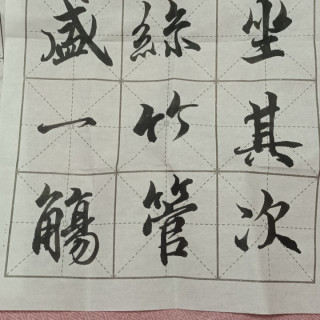 坐其次
絲竹管
盛一觴